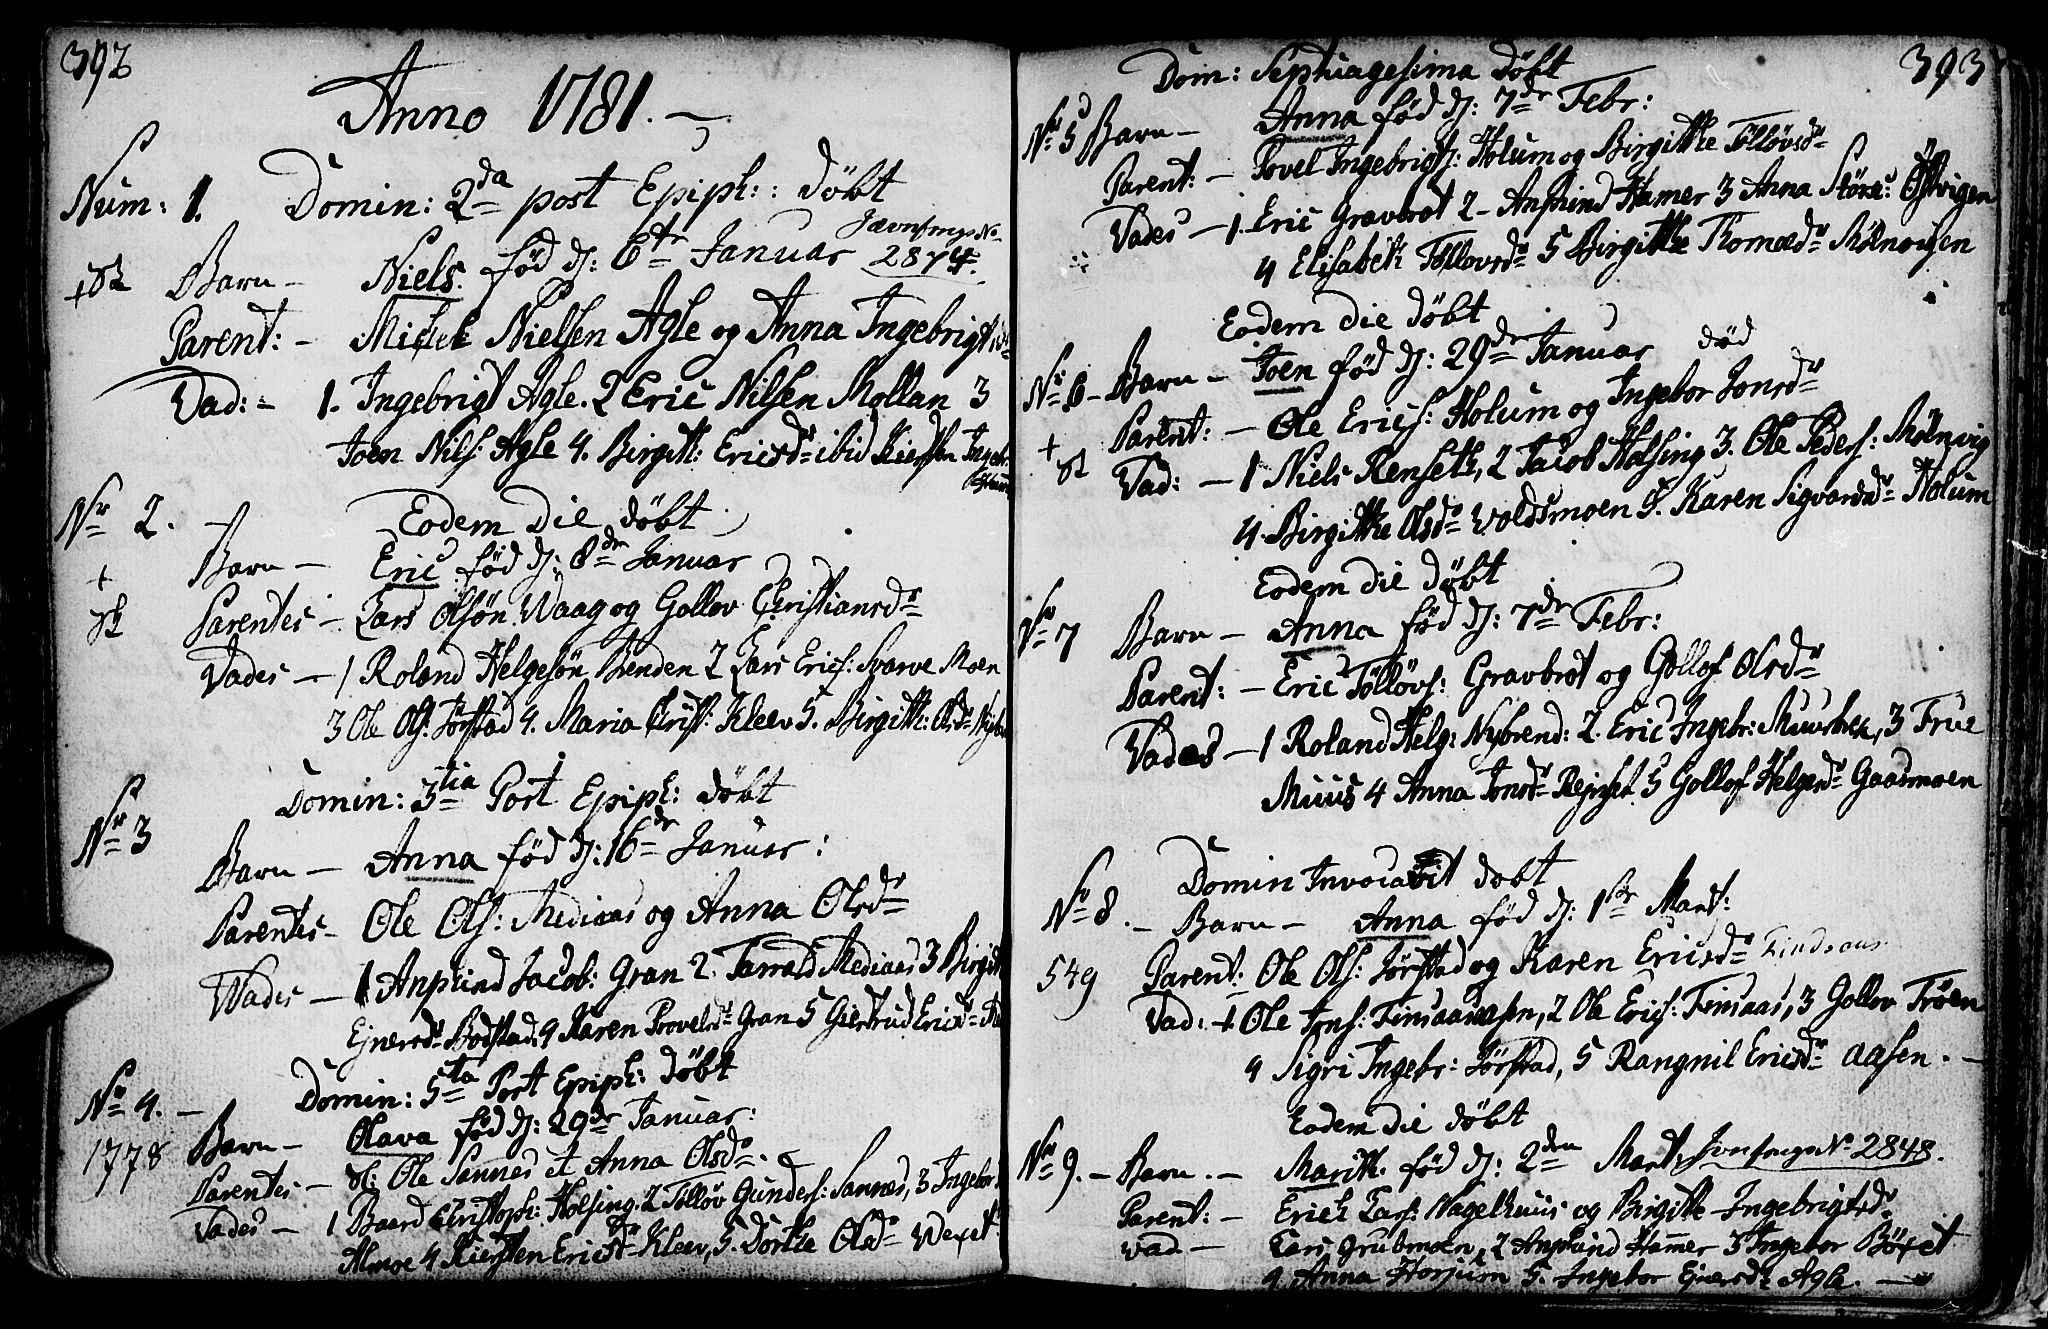 392
Anno 1781.
Num: 1. Domin: 2da post Epiph: döbt
Jævnførings No
Barn - Niels. fød d: 6te Januar 2874.
Parent: - Michel Nielsen Agle og Anna Ingebrigtsdr
Vad: - 1. Ingebrigt Agle. 2 Eric Nilsen Mollan 3
Joen Nils: Agle 4. Birgit: Ericsdr ibid Kiersten Ingebr:
Nr 2. Eodem Die döbt
Barn - Eric fød d: 8de Januar
+
Parentes - Lars Olsön Waag og Gollov Christiansdr
Vades - 1 Roland Helgesön Brenden 2 Lars Erics: Svarve Moen
3 Ole Ols: Jörstad 4. Maria Christ: Kleev 5. Birgitk: Olsdr
Domin: 3tia Post Epiph: döbt
Nr 3
Barn - Anna fød d: 16de Januar:
Parentes - Ole Ols: Mediaas og Anna Olsdr
Vades - 1 Anphind Jacob: Gran 2. Tarrald Mediaas 3 Birgit
Ejnersdr Bodstad, 4 Karen Provelsdr Gran 5 Giertrud Ericsdr
Domin: 5ta Post Epiph: döbt
Nr 4. -
Barn - Olava fød d: 29de Januar:
1778
Parentes - Ole Sannes et Anna Olsdr.
Vades - 1 Baard Christoph: Holsing. 2 Tölløv Gunders: Sannes, 3 Ingebor
Almoe 4 Kiersten Ericsdr Kleev, 5. Dorthe Olsdr Wexet
393
Dom: Septuagesima döbt
Nr 5 Barn - Anna fød d: 7de Febr:
Parent: - Povel Ingebrigts: Holum og Birgithe Tölløvsdr
Vades - 1. Eric Gravbrot 2 - Anphind Hamer 3 Anna Störe: Östvigen
4 Elisabeth Tölløvsdr 5 Birgithe Thomædr Mölnvigen
Eodem die döbt
Nr 6 - Barn - Joen fød d: 29de Januar død
Parent: - Ole Erics: Holum og Ingebor Jonsdr
+
Vad: - 1 Niels Renseth, 2 Jacob Holsing 3. Ole Peders: Mölnvig
4. Birgithe Olsdr Woldsmoen 5. Karen Sigvardsdr Holum
Eodem die döbt
Nr 7 Barn - Anna fød d: 7de Febr:
Parent: - Eric Tölløvs: Gravbrot og Gollof Olsdr
Vades - 1 Roland Helg: Nybrend: 2. Eric Ingebr: Muusbek, 3 Frue
Muus 4 Anna Jonsdr 5 Gollof Helgesdr Gaasmoen
Domin Invocavit döbt
Nr 8. - Barn - Anna fød d: 1ste Mart:
549 Parent: Ole Ols: Jörstad og Karen Ericsdr Findsaas
Vad: 1. Ole Jons: Finsaasaasen, 2 Ole Erics: Finsaas, 3 Gollov Trøen
4 Sigri Ingebr: Jörstad, 5 Rangnil Ericsdr aasen. -
Eodem die döbt
Nr 9. - Barn. - Marith. fød d: 2den Mart, Jevnførings No 2848.
Parent: - Erich Lars: Nagelhuus og Birgithe Ingebrigtsdr
Vad. - Lars Grubmoen, 2 Anphind Hammer 3 Ingebor Böxet
4 Anna Horjum 5. Ingebor Ejnersdr Agle. -